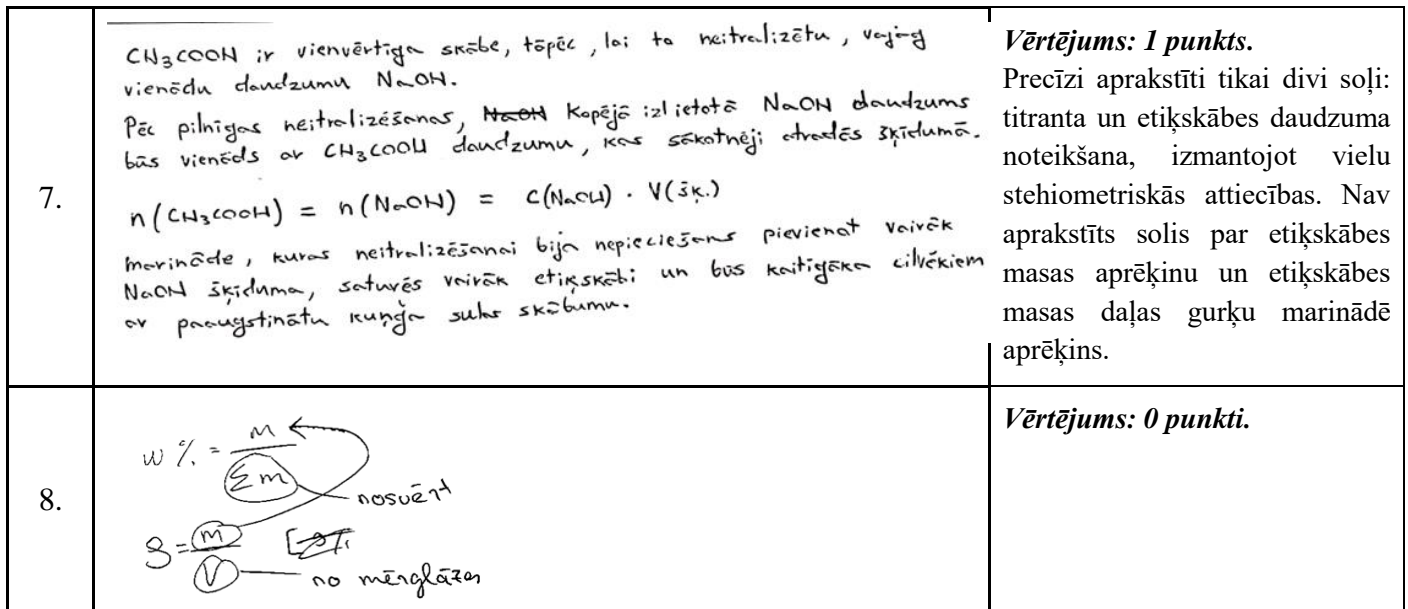 7.
CH₃COOH ir vienvērtīga skābe, tāpēc, lai to neitralizētu, vajag
vienādu daudzumu NaOH.
Pēc pilnīgas neitralizēšanas, ~~NaOH~~ Kopējā izlietotā NaOH daudzums
būs vienāds ar CH₃COOH daudzumu, kas sākotnēji atradās šķīdumā.
n(CH₃COOH) = n(NaOH) = c(NaOH) · V(šķ.)
marināde, kuras neitralizēšanai bija nepieciešams pievienot vairāk
NaOH šķīduma, saturēs vairāk etiķskābi un būs kaitīgāka cilvēkiem
ar paaugstinātu kuņģa sulas skābumu.
Vērtējums: 1 punkts.
Precīzi aprakstīti tikai divi soļi:
titranta un etiķskābes daudzuma
noteikšana, izmantojot vielu
stehiometriskās attiecības. Nav
aprakstīts solis par etiķskābes
masas aprēķinu un etiķskābes
masas daļas gurķu marinādē
aprēķins.
8.
w % = m / Σm
nosvērt
ρ = m / V
no mērglāzes
Vērtējums: 0 punkti.